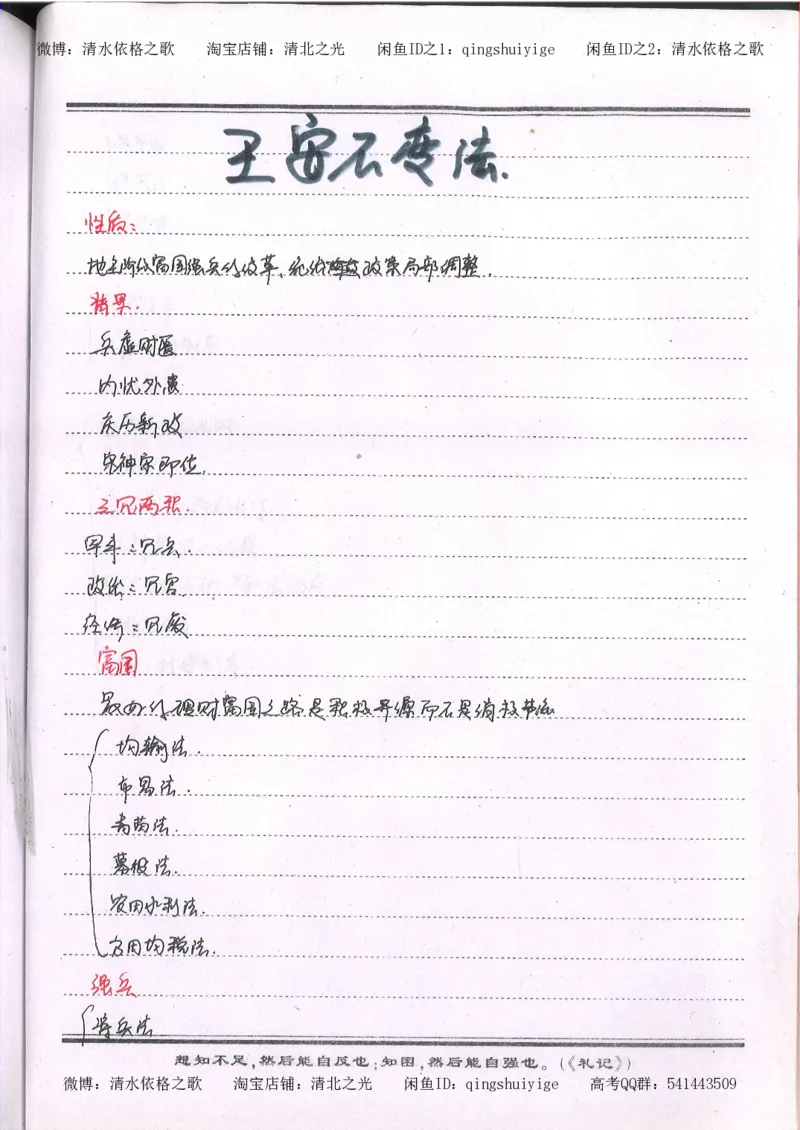 微博：清水依格之歌 淘宝店铺：清北之光 闲鱼ID之1：qingshuiyige 闲鱼ID之2：清水依格之歌
王安石变法.
性质：
地主阶级富国强兵的改革，统治政策局部调整.
背景.
兵虚财匮
内忧外患
庆历新政
宋神宗即位.
三冗两积.
军事：冗兵.
政治：冗官
经济：冗废
富国
最好的理财富国之路是积极开源而不是消极节流
均输法.
市易法.
青苗法.
募役法.
农田水利法.
方田均税法.
强兵
将兵法
想知不足，然后能自反也；知图，然后能自强也。(《礼记》)
微博：清水依格之歌 淘宝店铺：清北之光 闲鱼ID：qingshuiyige 高考QQ群：541443509